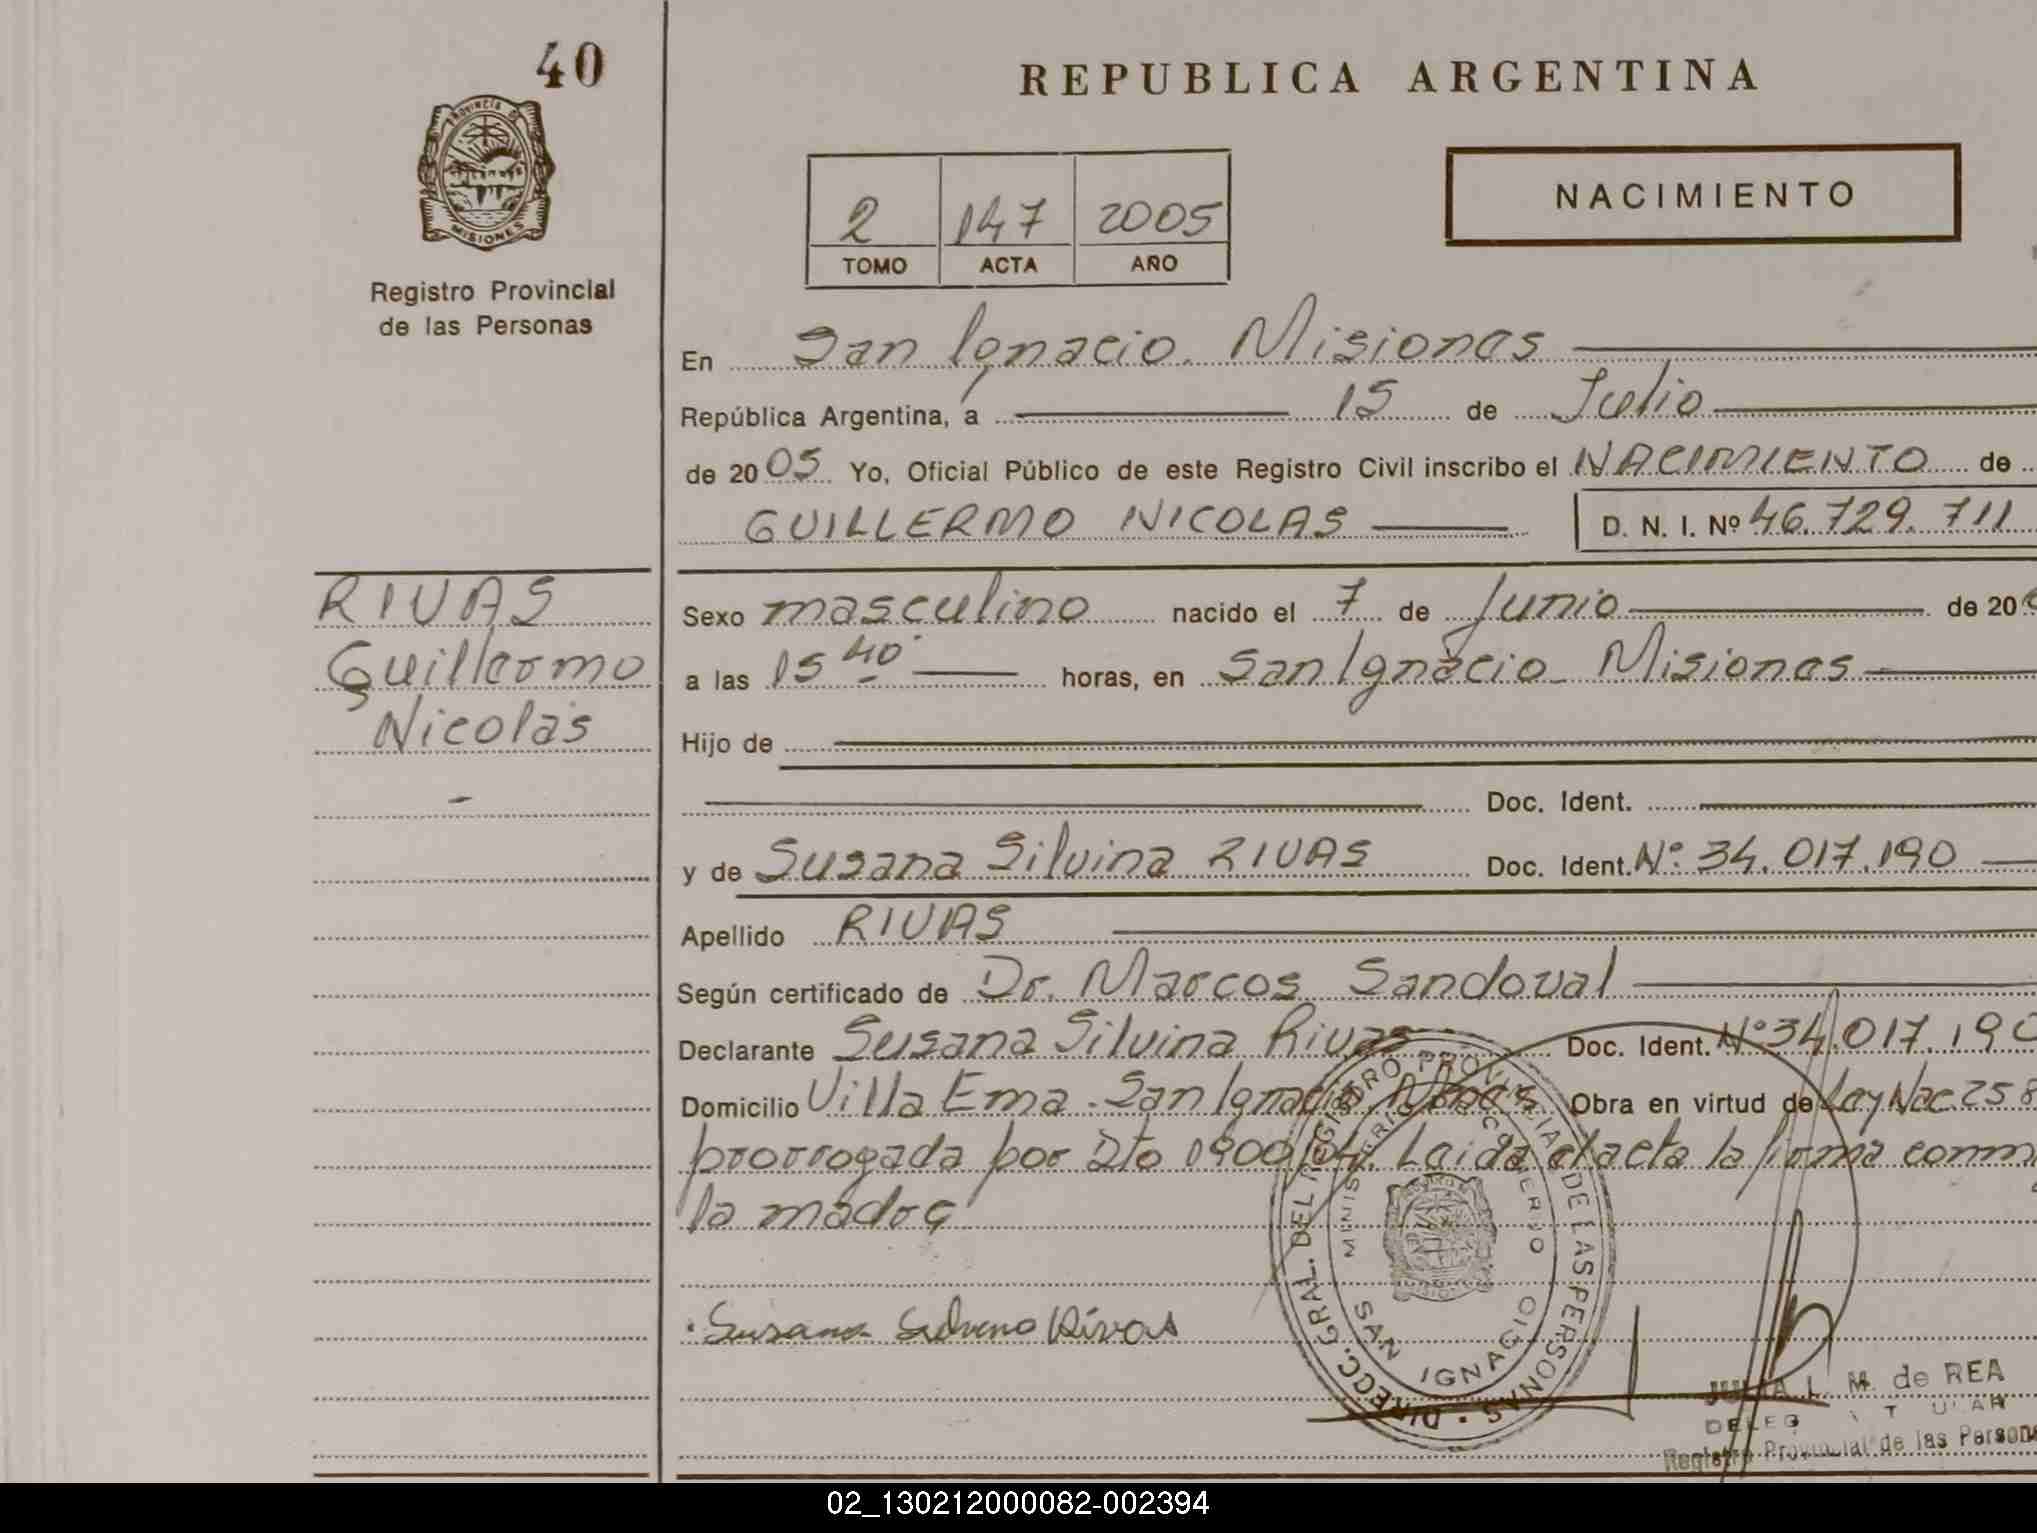 40
PROVINCIA DE
MISIONES
Registro Provincial
de las Personas
RIVAS
Guillermo
Nicolás
REPUBLICA ARGENTINA
2 147 2005
TOMO ACTA AÑO
NACIMIENTO
En San Ignacio. Misiones
República Argentina, a 15 de Julio
de 2005 Yo, Oficial Público de este Registro Civil inscribo el NACIMIENTO de
GUILLERMO NICOLAS D. N. I. Nº 46.729.711
Sexo masculino nacido el 7 de Junio de 20
a las 15 40 horas, en San Ignacio Misiones
Hijo de
Doc. Ident.
y de Susana Silvina RIVAS Doc. Ident. Nº 34.017.190
Apellido RIVAS
Según certificado de Dr. Marcos Sandoval
Declarante Susana Silvina Rivas Doc. Ident. Nº 34.017.190
Domicilio Villa Ema - San Ignacio Mnes Obra en virtud de Ley Nac. 258
prorrogada por Dto 1900/04. Leida el acta la firma conm
la madre
Susana Silvina Rivas
DIRECC. GRAL. DEL REGISTRO PROVINCIAL DE LAS PERSONAS
SAN IGNACIO
L. M. de REA
Registro Provincial de las Person
02_130212000082-002394